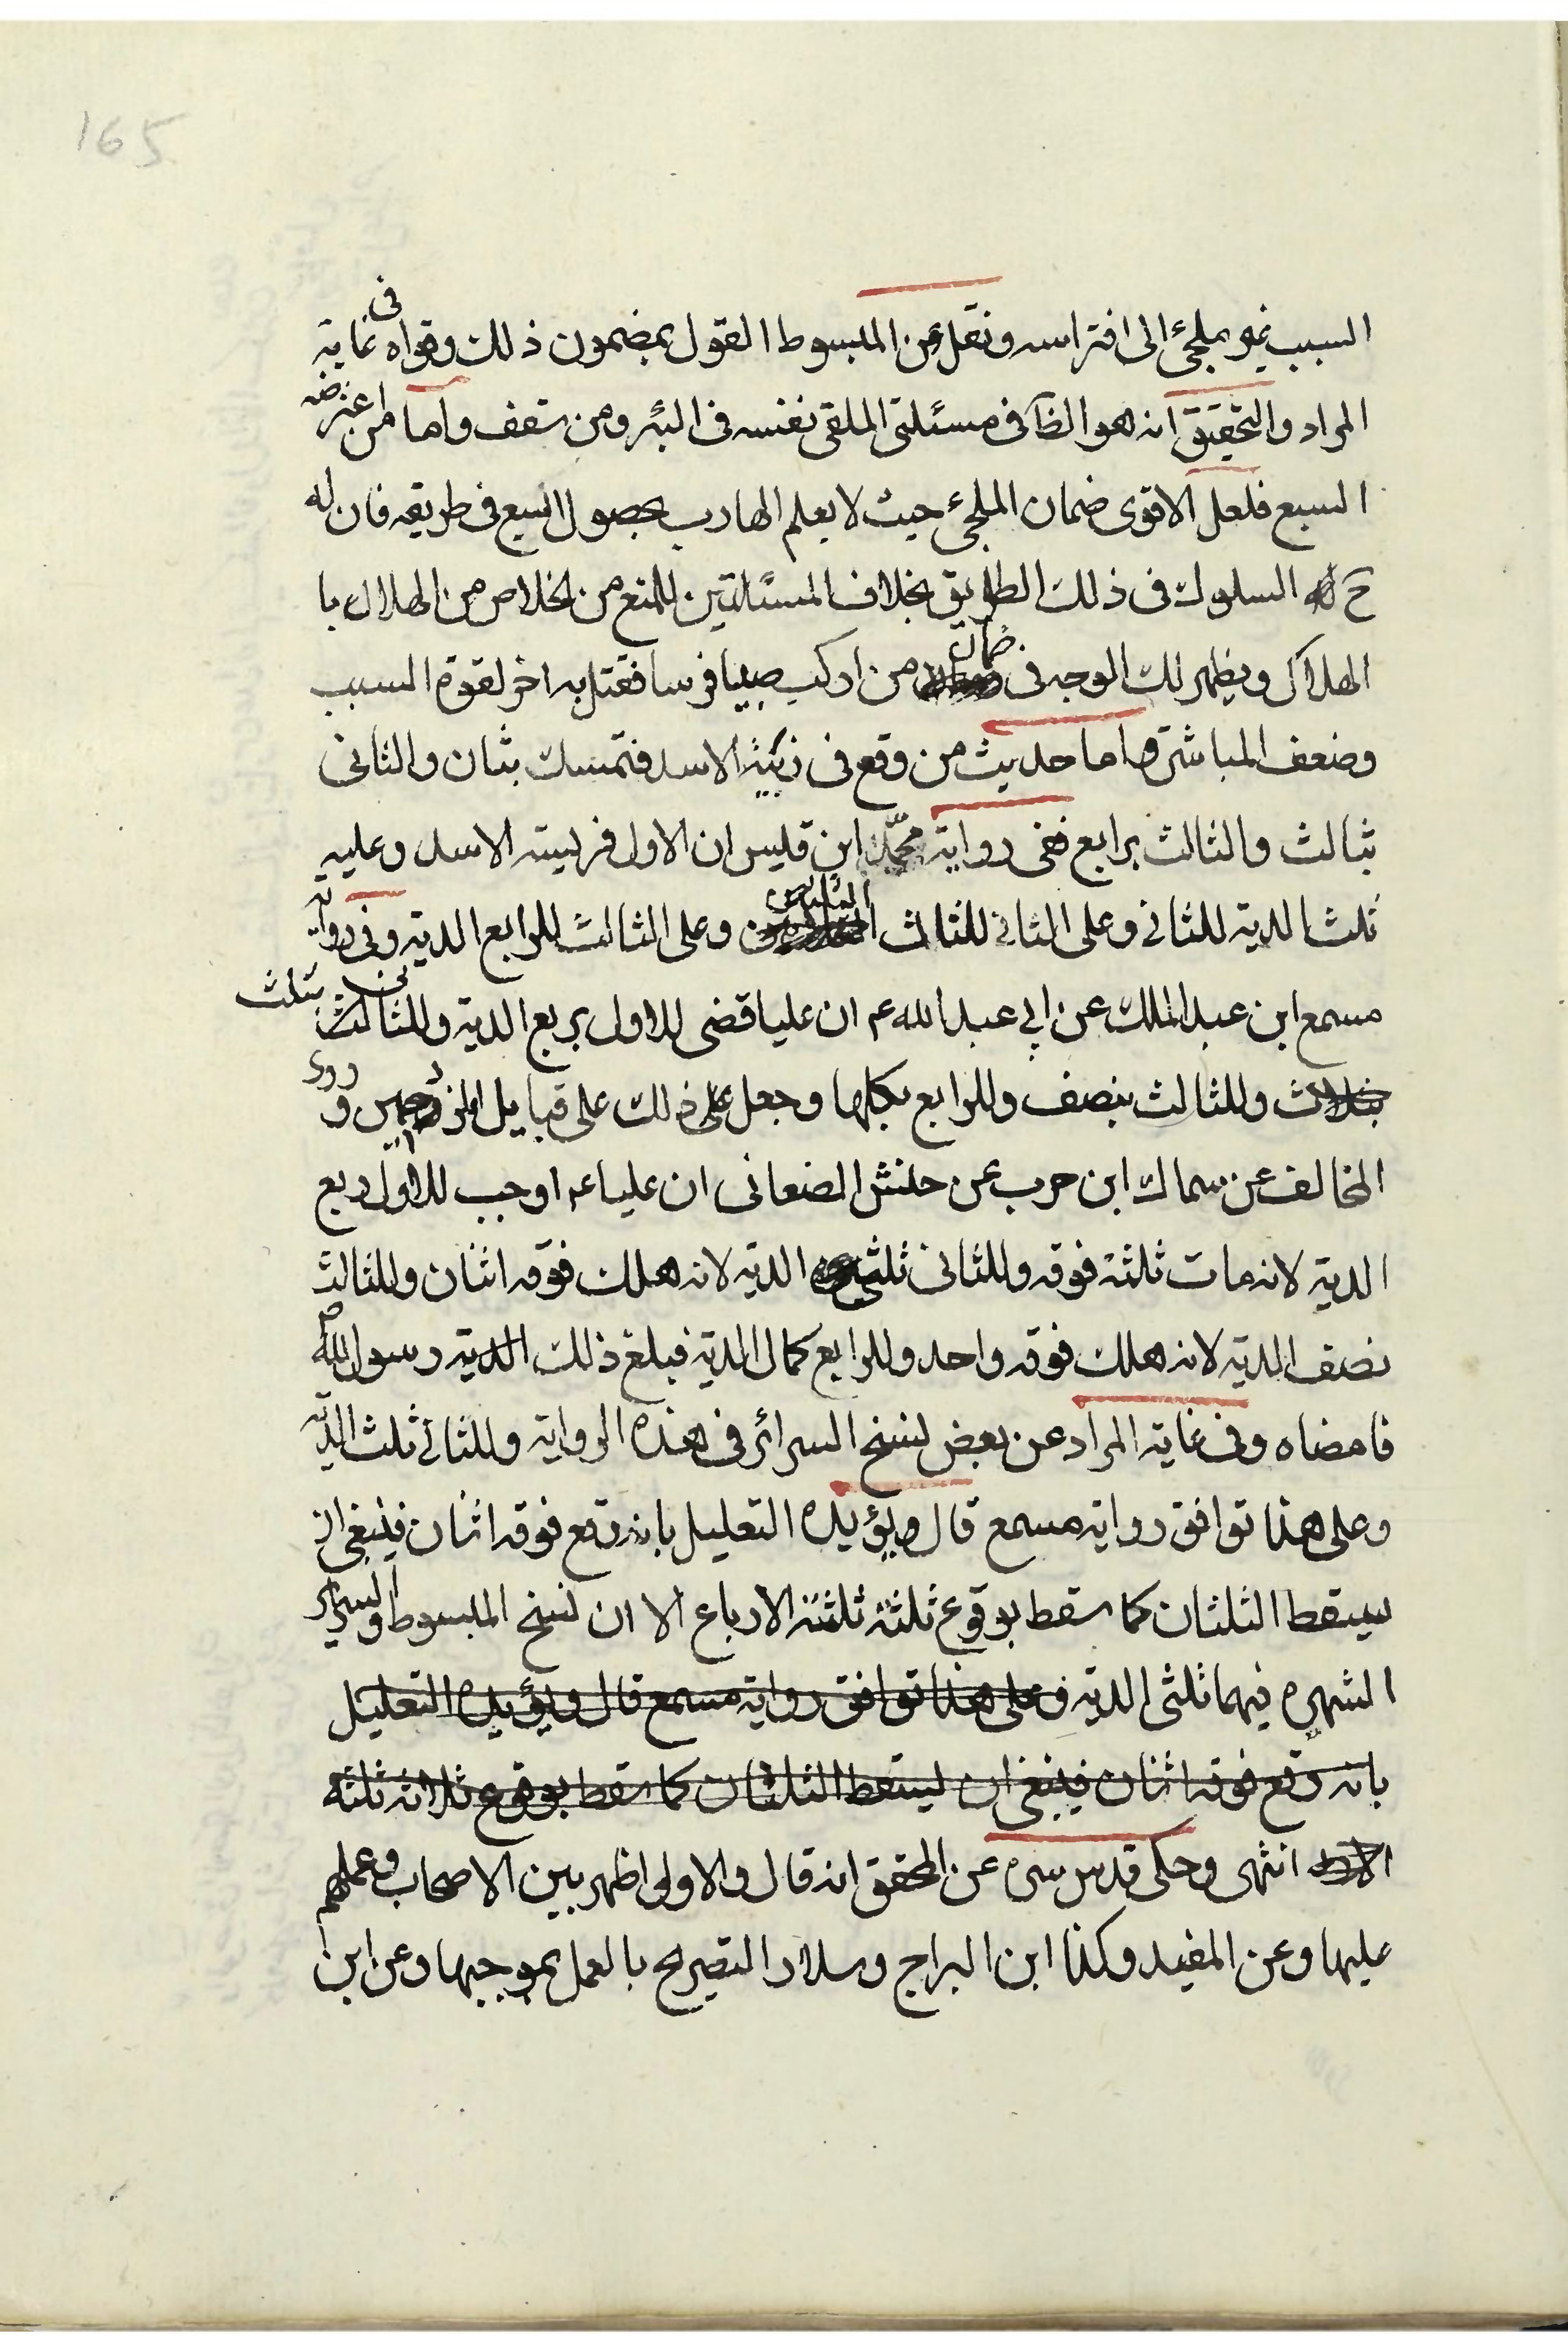 165
السبب غير ملجئ الى افتراسه ونقل عن المبسوط القول بمضمون ذلك وقواه فى غاية
المراد والتحقيق انه هو الظ فى مسئلتى الملقى نفسه فى البئر ومن سقف واما من اعترضه
السبع فلعل الاقوى ضمان الملجئ حيث لا يعلم الهارب بحصول السبع فى طريقه فان له
ح السلوك فى ذلك الطريق بخلاف المسئلتين للمنع من الخلاص من الهلاك با
الهلاك ويظهر لك الوجه فى ضمان من اركب صبيا فرسا فقتل به اخر لقوة السبب
وضعف المباشرة واما حديث من وقع فى زبية الاسد فتمسك بثان والثانى
بثالث والثالث برابع ففى رواية محمد ابن قيس ان الاول فريسة الاسد وعليه
ثلث الدية للثانى وعلى الثانى للثالث الثلثين وعلى الثالث للرابع الدية وفى رواية
مسمع ابن عبد الملك عن ابى عبد الله عم ان عليا قضى للاول بربع الدية وللثانى بثلث
وللثالث بنصف وللرابع بكلها وجعل ذلك على قبايل المزدحمين وروى
المخالف عن سماك ابن حرب عن حنش الصنعانى ان عليا عم اوجب للاول ربع
الدية لانه مات ثلثة فوقه وللثانى ثلثى الدية لانه هلك فوقه اثنان وللثالث
نصف الدية لانه هلك فوقه واحد وللرابع كمال الدية فبلغ ذلك الدية رسول الله ص
فامضاه وفى غاية المراد عن بعض نسخ السرائر فى هذه الرواية وللثانى ثلث الدية
وعلى هذا توافق رواية مسمع قال ويؤيده التعليل بانه وقع فوقه اثنان فينبغى ان
يسقط الثلثان كما سقط بوقوع ثلثة ثلثة الارباع الا ان نسخ المبسوط والسراير
الشهيره فيهما ثلثى الدية وعلى هذا توافق رواية مسمع قال ويؤيده التعليل
بانه وقع فوقه اثنان فينبغى ان يسقط الثلثان كما سقط بوقوع ثلاثة ثلثة
انتهى وحكى قدس سره عن المحقق انه قال والاولى اظهر بين الاصحاب وعملهم
عليها وعن المفيد وكذا ابن البراج وسلار التصريح بالعمل بموجبها وعن ابن